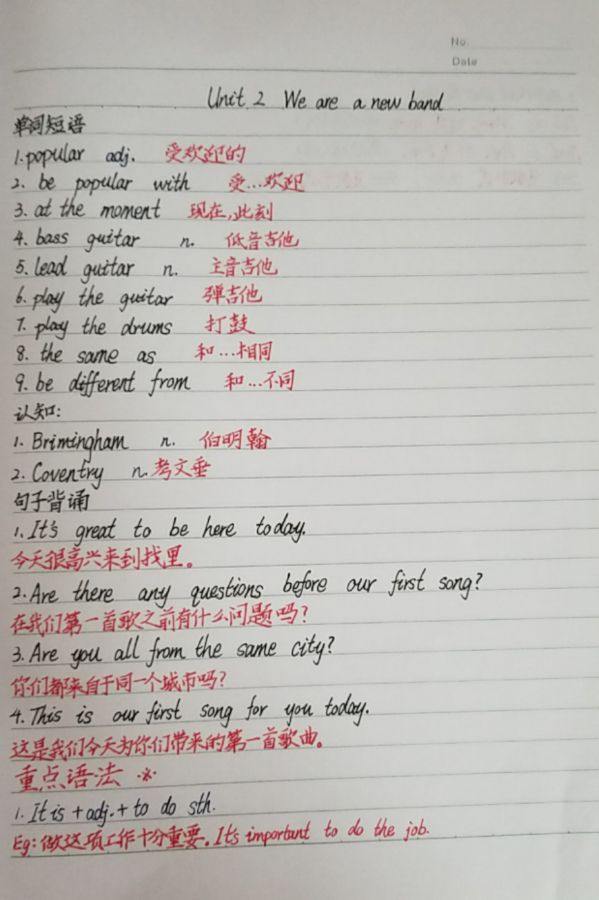 No.
Date
Unit 2 We are a new band
单词短语
1. popular adj. 受欢迎的
2. be popular with 受…欢迎
3. at the moment 现在,此刻
4. bass guitar n. 低音吉他
5. lead guitar n. 主音吉他
6. play the guitar 弹吉他
7. play the drums 打鼓
8. the same as 和…相同
9. be different from 和…不同
认知:
1. Brimingham n. 伯明翰
2. Coventry n. 考文垂
句子背诵
1. It's great to be here today.
今天很高兴来到找里。
2. Are there any questions before our first song?
在我们第一首歌之前有什么问题吗?
3. Are you all from the same city?
你们都来自于同一个城市吗?
4. This is our first song for you today.
这是我们今天为你们带来的第一首歌曲。
重点语法 ※
1. It is + adj. + to do sth.
Eg: 做这项工作十分重要。It's important to do the job.